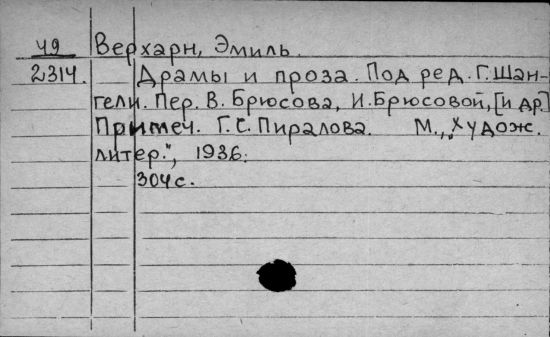 49 Верхарн, Эмиль.
2314. Драмы и проза. Под ред. Г. Шан-
гели. Пер. В. Брюсова, И. Брюсовой, [и др.]
Примеч. Г. С. Пиралова. М., „Худож.
литер.", 1936.
304 с.